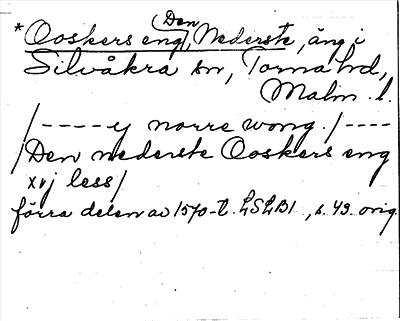 *Ooskers eng, (Den) Nederste, äng i
Silvåkra sn, Torna hd,
Malm. l.
/---- y norre wong. /----
/Den nederste Ooskers eng
xvj less/
förra delen av 1570-t. LSLB1, s. 43. orig.